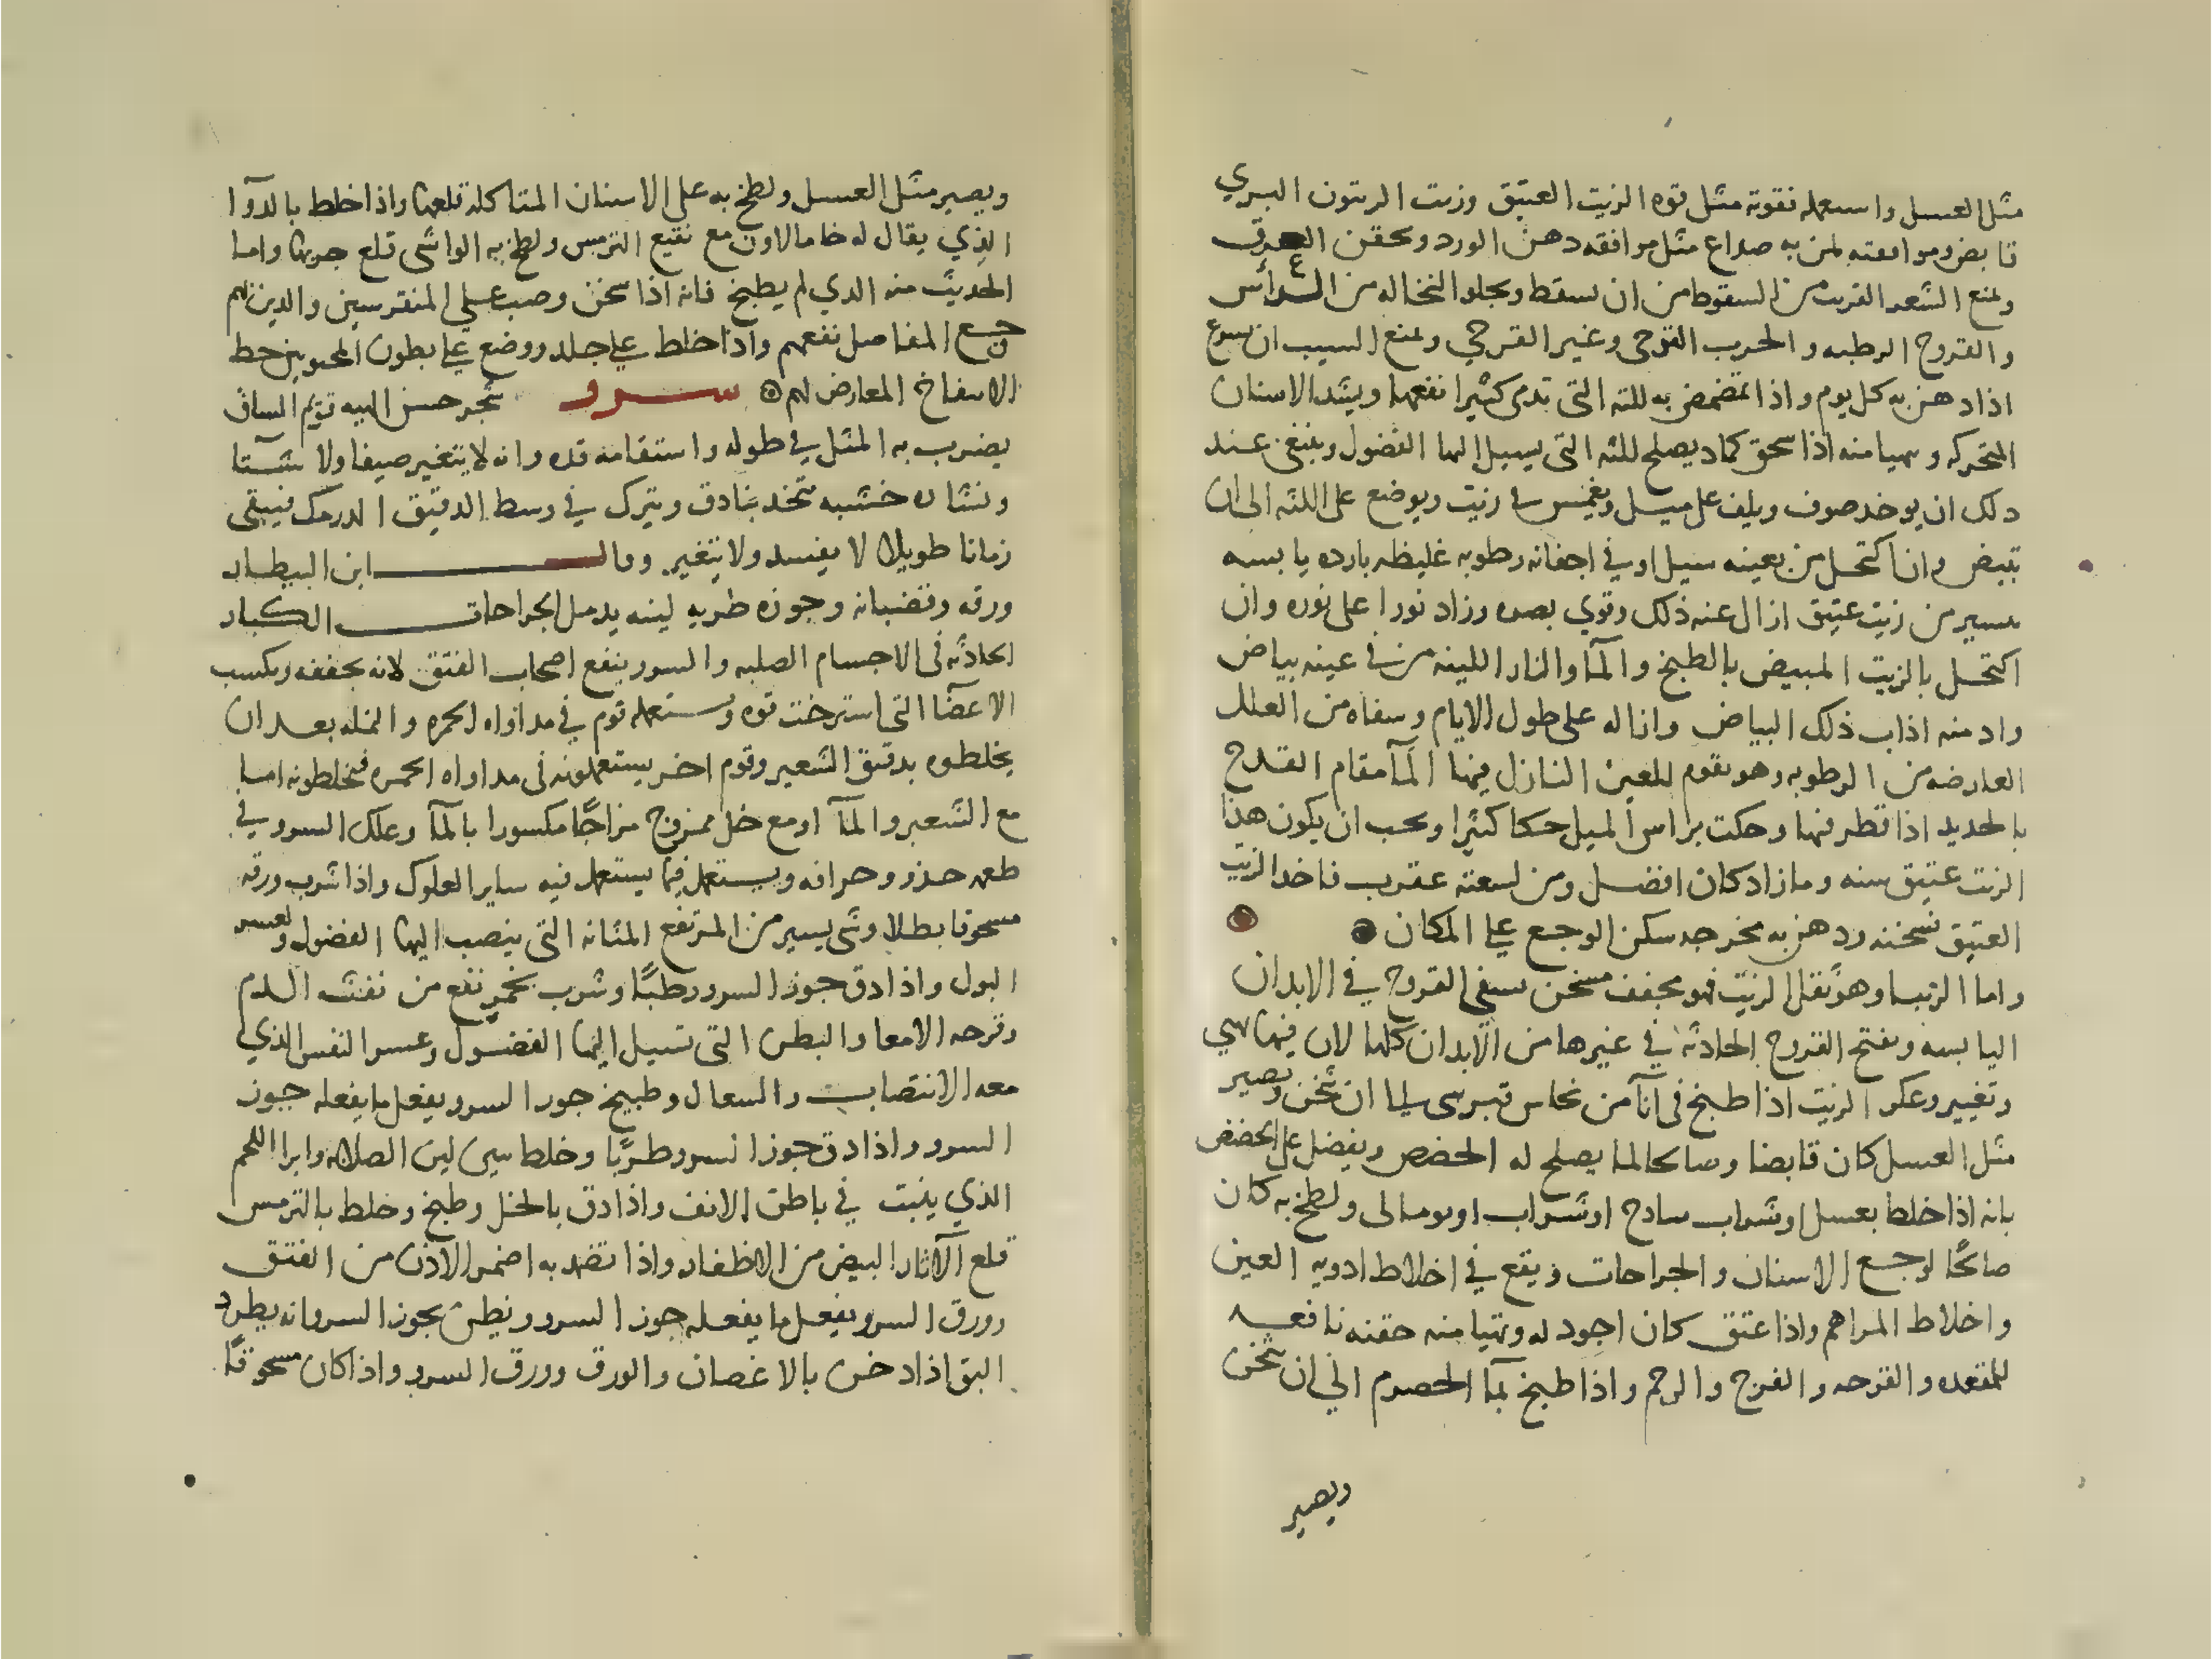 مثل العسل واستعمله فقوته مثل قوه الزيت العتيق وزيت الزيتون البري
قابض وموافقته لمن به صداع مثل موافقه دهن الورد ويحقن العرق
ويمنع الشعر القريب من السقوط من ان يسقط ويجلو النخاله من الرأس
والقروح الرطبه والجرب القرحي وغير القرحي ويمنع الشيب ان يسرع
اذا دهن به كل يوم واذا تمضمض به للثه التي تدمي كثيرا نفعها ويشد الاسنان
المتحركه ويهيا منه اذا سحق كماد يصلح للثه التي يسيل اليها الفضول وينبغي عند
ذلك ان يوخذ صوف ويلف على ميل ويغمس في زيت ويوضع على اللثه الى ان
تبيض وان اكتحل من بعينه سيل او في اجفانه رطوبه غليظه بارده يابسه
بيسير من زيت عتيق ازال عنه ذلك وقوي بصره وزاد نورا على نوره وان
اكتحل بالزيت المبيض بالطبخ والمآ والنار اللينه من في عينه بياض
وادمنه اذاب ذلك البياض وازاله على طول الايام وشفاه من العلل
العارضه من الرطوبه وهو يقوم للعين النازل فيها المآ مقام القدح
بالحديد اذا قطر فيها وحكت براس الميل حكا كثيرا ويجب ان يكون هذا
الزيت عتيق سنه وما زاد كان افضل ومن لسعته عقرب فاخذ الزيت
العتيق سخنه ودهن به مخرجه سكن الوجع على المكان
واما الزيبا وهو ثقل الزيت فهو مجفف مسخن يشفي القروح في الابدان
اليابسه ويفتح القروح الحادثه في غيرها من الابدان كلها لان فيها شي
وتغيير وعكر الزيت اذا طبخ في انآ من نحاس قبرسي الى ان يثخن ويصير
مثل العسل كان قابضا وصالحا لما يصلح له الحضض ويفضل على الحضض
بانه اذا خلط بعسل او شراب سادج او شراب اونومالي ولطخ به كان
صالحًا لوجع الاسنان والجراحات ويقع في اخلاط ادويه العين
واخلاط المراهم واذا عتق كان اجود له ويتهيا منه حقنه نافعه
للمقعده والقرحه والفرج والرحم واذا طبخ بمآ الحصرم الى ان يثخن
ويصير
ويصير مثل العسل ولطخ به على الاسنان المتاكله قلعها واذا خلط بالدوآ
الذي يقال له خامالاون مع نقيع الترمس ولطخ به المواشي قلع جربها واما
الحديث منه الذي لم يطبخ فانه اذا سخن وصب على المنقرسين والذين بهم
وجع المفاصل نفعهم واذا خلط على جلد ووضع على بطون المحبونين حط
الانتفاخ العارض لهم سرو شجر حسن الهيه قويم الساق
يضرب به المثل في طوله واستقامه قده وانه لا يتغير صيفا ولا شتآ
ونشاره خشبه تتخذ بنادق ويترك في وسط الدقيق الدرمك فيبقى
زمانا طويلا لا يفسد ولا يتغير وقال ابن البيطار
ورقه وقضبانه وجوزه طريه لينه يدمل الجراحات الكبار
الحادثه في الاجسام الصلبه والسرو ينفع اصحاب الفتق لانه يجففه ويكسب
الاعضآ التي استرخت قوه ويستعمله قوم في مداواه الحمره والنمله بعد ان
يخلطوه بدقيق الشعير وقوم اخر يستعملونه في مداواه الحمره فيخلطونه اما
مع الشعير والمآ او مع خل ممزوج مزاجًا مكسورا بالمآ وعلك السرو في
طعمه حذو وحرافه ويستعمل فيما يستعمل فيه ساير العلوك واذا شرب ورقه
مسحوقا بطلا وشي يسير من المر نفع المثانه التي ينصب اليها الفضول وعسر
البول واذا دق جوز السرو رطبًا وشرب بخمر نفع من نفث الدم
وقرحه الامعا والبطن التي تسيل اليها الفضول وعسر النفس الذي
معه الانتصاب والسعال وطبيخ جوز السرو يفعل ما يفعله جوز
السرو واذا دق جوز السرو طريًا وخلط بتين لين الصلابه وابرا اللحم
الذي ينبت في باطن الانف واذا دق بالخل وطبخ وخلط بالترمس
قلع الآثار البيض من الاظفار واذا تضمد به اضمر الادره من الفتق
وورق السرو يفعل ما يفعله جوز السرو ويظن بجوز السرو انه يطرد
البق اذا دخن بالاغصان والورق وورق السرو واذا كان مسحوقًا